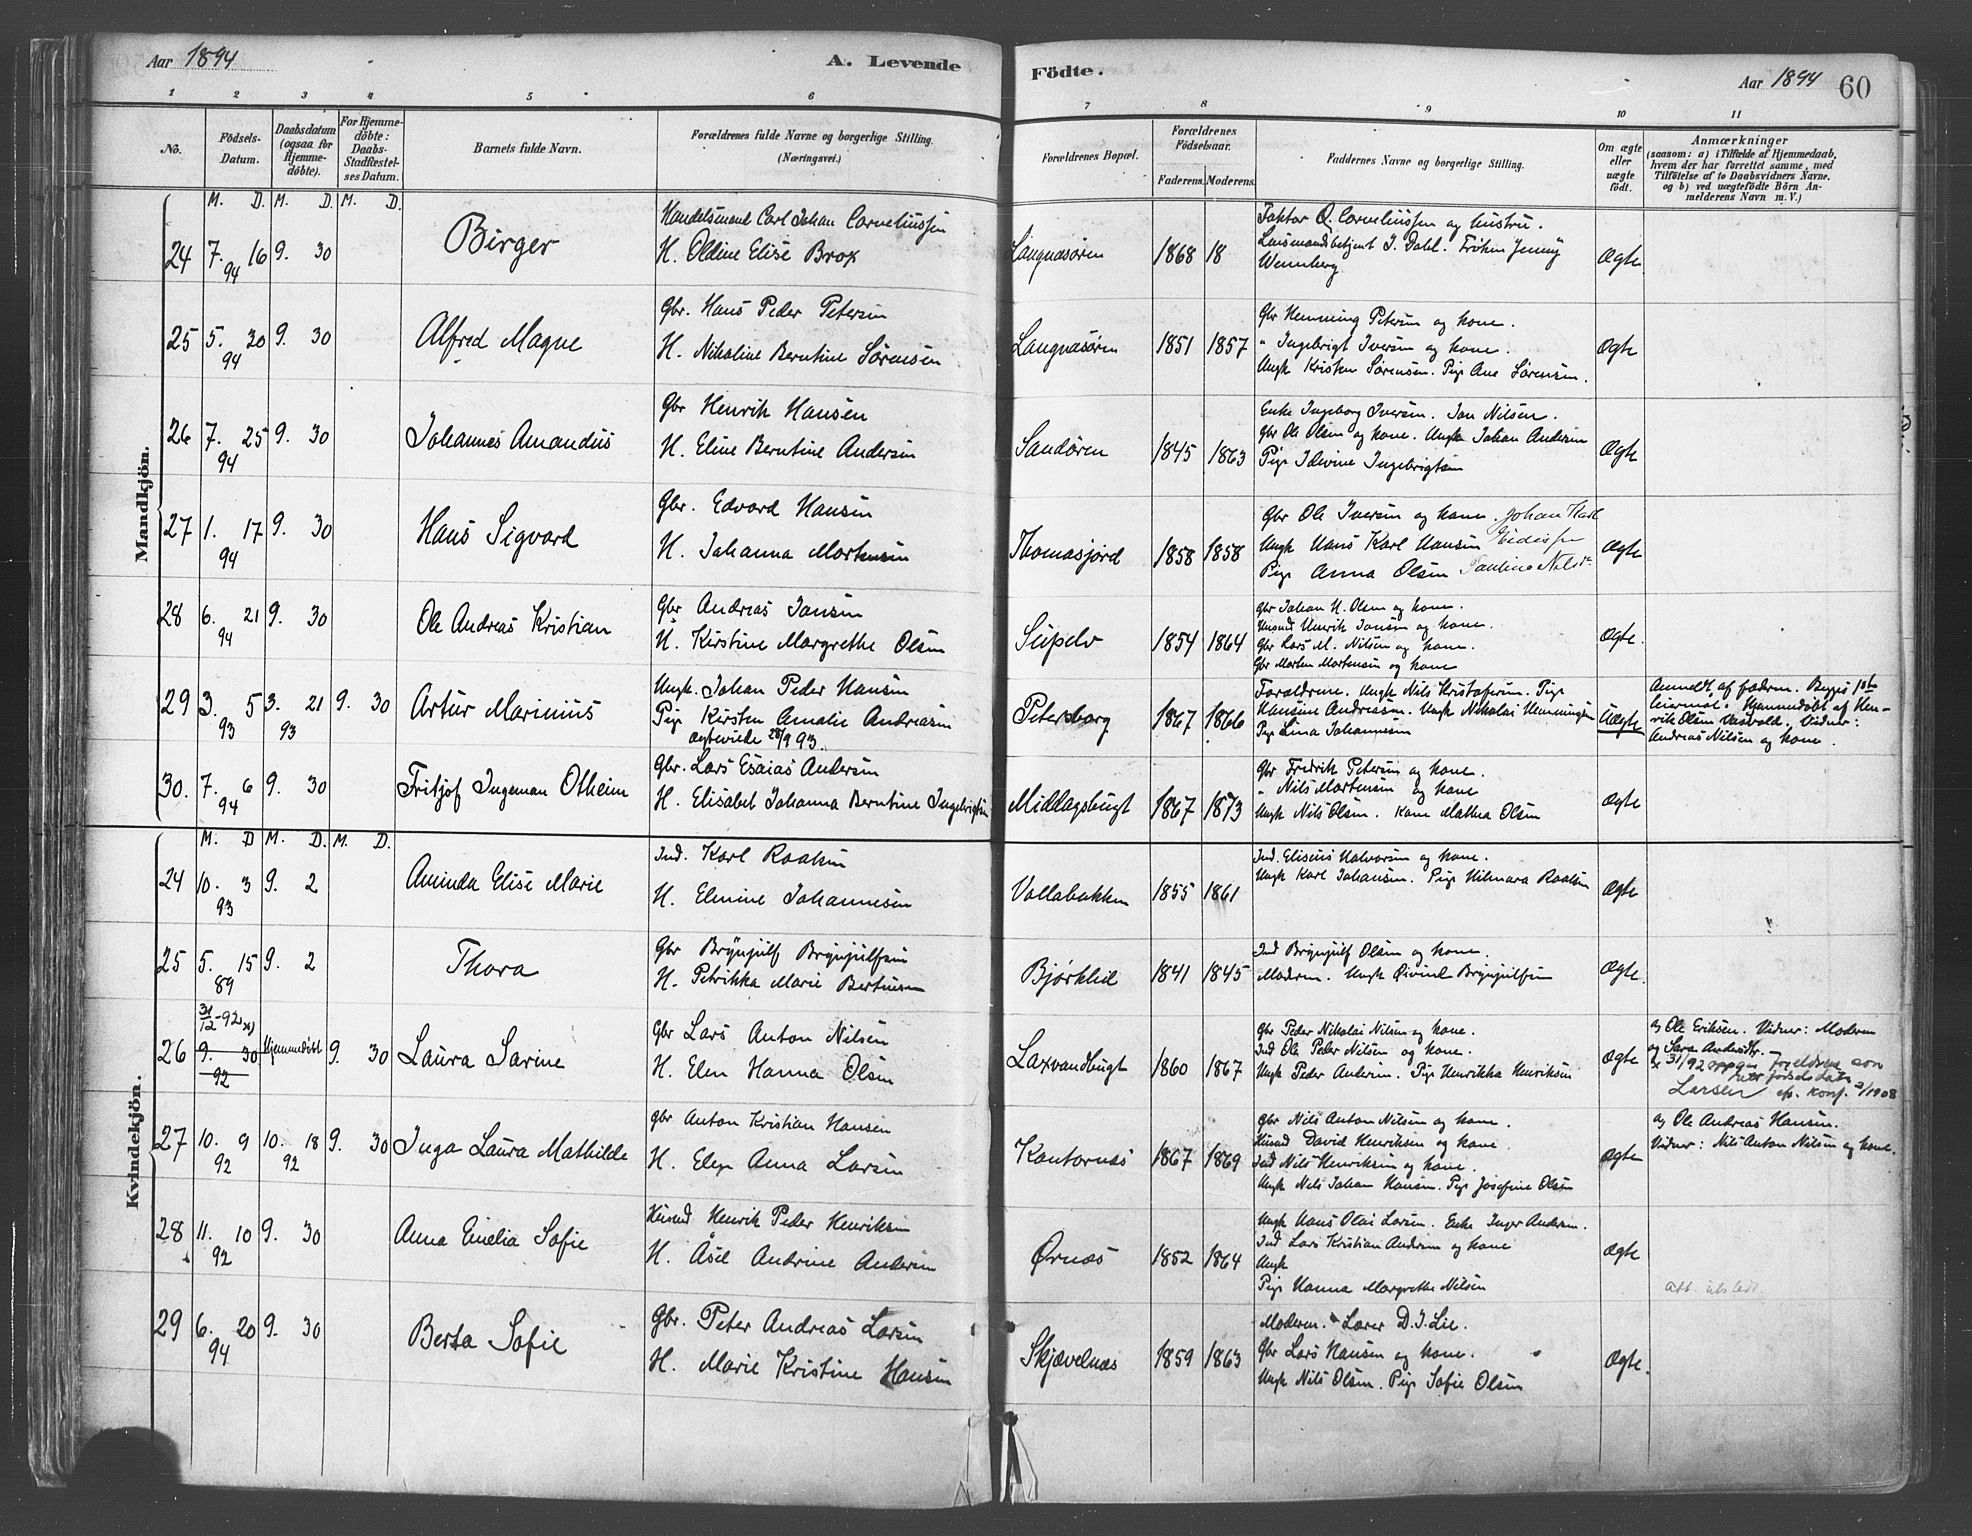 Aar 1894 A. Levende Födte. Aar 1894 60
1 2 3 4 5 6 7 8 9 10 11
No. Födsels-Datum. Daabsdatum (ogsaa for Hjemme-döbte). For Hjemme-döbte: Daabs-Stadfæstel-ses Datum. Barnets fulde Navn. Forældrenes fulde Navne og borgerlige Stilling. (Næringsvei.) Forældrenes Bopæl. Forældrenes Födselsaar. Faderens. Moderens. Faddernes Navne og borgerlige Stilling. Om ægte eller uægte födt. Anmærkninger (saasom: a) i Tilfælde af Hjemmedaab, hvem der har forrettet samme, med Tilföielse af to Daabsvidners Navne, og b) ved uægtefödte Börn An-melderens Navn m. V.)
Mandkjön.
M. D. M. D. M. D.
24 7. 16 94 9. 30 Birger
Handelsmand Carl Johan Corneliussen
H. Oldine Elise Brox
Langnæsøren 1868 18
Faktor O. Corneliussen og hustru.
Lensmandsbetjent J. Dahl. Frøken Jenny
Wennberg
Ægte
25 5. 30 94 9. 30 Alfred Magne
Gbr. Hans Peder Petersen
H. Nikoline Berntine Sørensen
Langnæsøren 1851 1857
Gbr Henning Petersen og kone.
" Ingebrigt Iversen og kone.
Ungk Kristen Sørensen. Pige Ane Sørensen.
Ægte
26 7. 25 94 9. 30 Johannes Amandus
Gbr Henrik Hansen
H. Eline Berntine Andersen
Sandøren 1845 1863
Enke Ingeborg Iversen. Jon Nilsen.
Gbr Ole Olsen og kone. Ungk Johan Andersen
Pige Idevine Ingebrigtsen
Ægte
27 1. 17 94 9. 30 Hans Sigvard
Gbr. Edvard Hansen
H. Johanna Mortensen
Thomasjord 1858 1858
Gbr Ole Iversen og kone. Johan Karl
Ungk Hans Karl Hansen
Pige Anna Olsen
Ægte
28 6. 21 94 9. 30 Ole Andreas Kristian
Gbr Andreas Jansen
H. Kirstine Margrethe Olsen
Seipelv 1854 1864
Gbr Johan H. Olsen og kone.
Husmd Henrik Jansen og kone.
Gbr Lars M. Nilsen og kone.
Gbr Morten Mortensen og kone
Ægte.
29 3. 5 93 3. 21 93 9. 30 Artur Marinius
Ungk. Johan Peder Hansen
Pige Kirsten Amalie Andreasen
ægteviede 28/9 93.
Petersborg 1867 1866
Forældrene. Ungk Nils Kristofersen. Pige
Hansine Andreasen. Ungk Nikolai Henningsen
Pige Lina Johannesen
Uægte
Anmeldt af faderen. Begges 1ste
leiermaal. Hjemmedøbt af Hen-
rik Olsen Vasvold. Vidner:
Andreas Nilsen og kone.
30. 7. 6 94 9. 30 Fritjof Ingeman Otheim
Gbr. Lars Esaias Andersen
H. Elisabet Johanna Berntine Ingebrigtsen
Middagsbugt 1867 1873
Gbr Fredrik Petersen og kone.
" Nils Mortensen og kone
Ungk Nils Olsen. Kone Mathea Olsen
Ægte
Kvindekjön.
M. D M. D. M. D.
24 10. 3 93 9. 2 Aminda Elise Marie
Ind. Karl Roaldsen
H. Elmine Johannesen
Vollabakken 1855 1861
Ind. Eliseus Halvorsen og kone.
Ungk Karl Johansen. Pige Hilmara Roaldsen
Ægte
25 5. 15 89 9. 2 Thora
Gbr Brynjulf Brynjulfsen
H. Petrikka Marie Berntsen
Bjørklid 1841 1845
Ind Brynjulf Olsen og kone.
Moderen. Ungk Øivind Brynjulfsen
Ægte.
31/12-92 x)
26 9. 30 92 Hjemmedøbt 9. 30 Laura Sarine
Gbr Lars Anton Nilsen
H. Elen Hanna Olsen
Laxvandbugt 1860 1867
Gbr Peder Nikolai Nilsen og kone.
Ind Ole Peder Nilsen og kone.
Ungk Peder Andersen. Pige Henrikka Henriksen
Ægte
af Ole Eriksen. Vidner: Moderen
og Sara Andersdtr.
x 31/92 opgav forældrene som
rett fødselsdato
Larsen ifø. konf. 2/1908
27 10. 9 92 10. 18 92 9. 30 Inga Laura Mathilde
Gbr Anton Kristian Hansen
H. Elen Anna Larsen
Kantornæs 1867 1869
Gbr Nils Anton Nilsen og kone.
Husmd David Henriksen og kone.
Ind Nils Henriksen og kone.
Ungk Nils Johan Hansen. Pige Josefine Olsen
Ægte
af Ole Andreas Hansen.
Vidner: Nils Anton Nilsen og kone.
28 11. 10 92 9. 30 Anna Emelia Sofie
Husmd Henrik Peder Henriksen
H. Åsel Andrine Andersen
Ørnæs 1852 1864
Ungk Hans Olai Larsen. Enke Inger Andersen.
Ind Lars Kristian Andersen og kone
Ungk
Pige Hanna Margrethe Nilsen
Ægte
Att. utstedt.
29 6. 20 94 9. 30 Berta Sofie
Gbr. Peter Andreas Larsen
H. Marie Kristine Hansen
Skjævelnæs 1859 1863
Moderen. Lærer D. J. Lie.
Gbr Lars Hansen og kone.
Ungk Nils Olsen. Pige Sofie Olsen
Ægte.